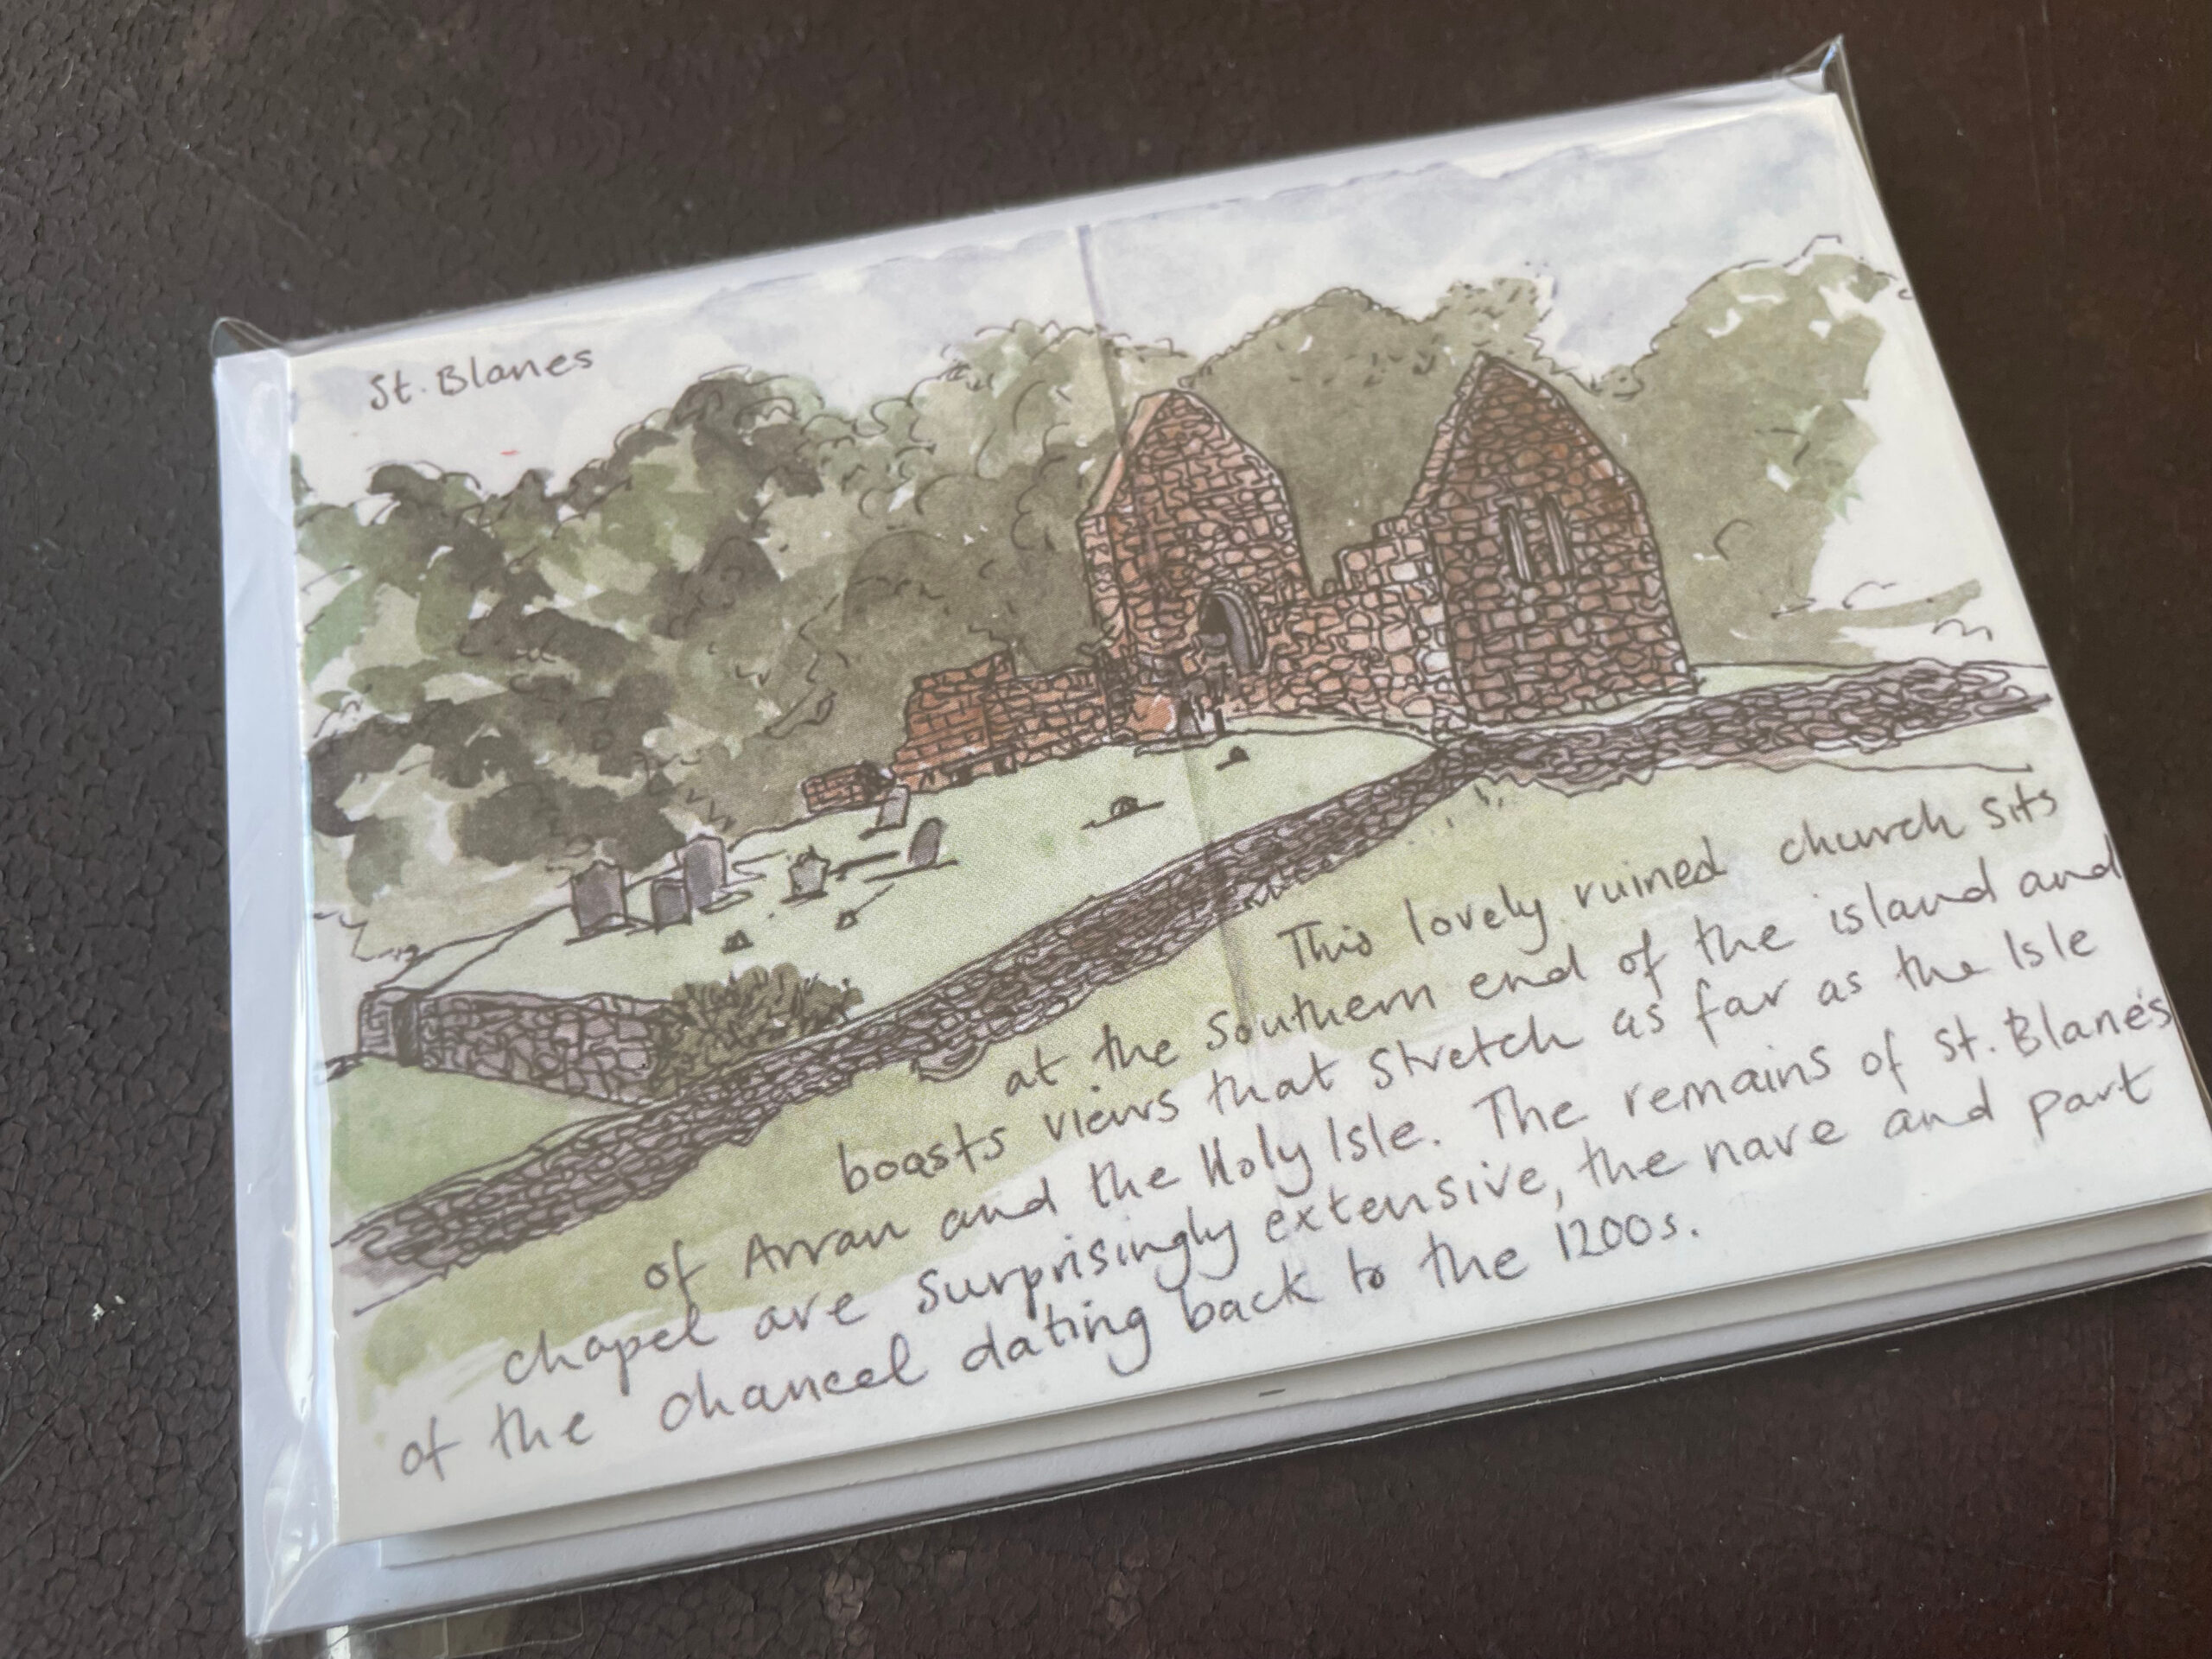 St. Blanes
This lovely ruined church sits
at the Southern end of the island and
boasts views that stretch as far as the Isle
of Arran and the Holy Isle. The remains of St. Blane's
chapel are surprisingly extensive, the nave and part
of the chancel dating back to the 1200s.